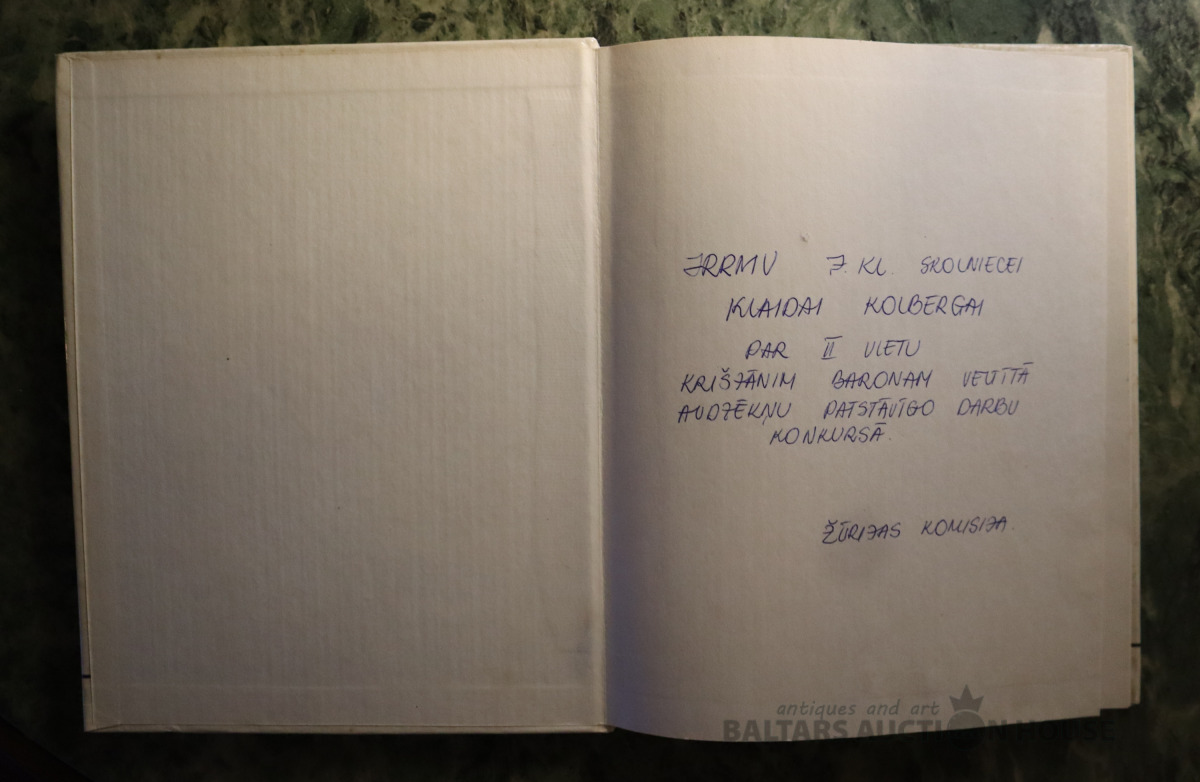 JRRMV 7. KL. SKOLNIECEI
KLAIDAI KOLBERGAI
PAR II VIETU
KRIŠJĀNIM BARONAM VELTĪTĀ
AUDZĒKŅU PATSTĀVĪGO DARBU
KONKURSĀ.
ŽŪRIJAS KOMISIJA.
antiques and art
BALTARS AUCTION HOUSE